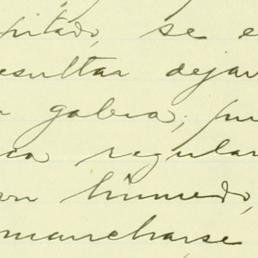 pitado, se e
esultar dejar
galera; pu
ca regular
on húmedo,
mancharse